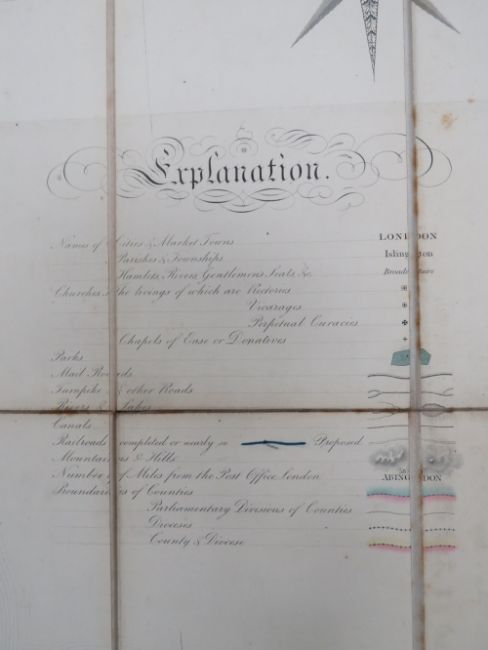 Explanation.
Names of Cities & Market Towns LONDON
Parishes & Townships Islington
Hamlets, Rivers, Gentlemens Seats &c.
Churches the livings of which are Rectories
Vicarages
Perpetual Curacies
Chapels of Ease or Donatives
Parks
Mail Roads
Turnpike & other Roads
Rivers & Lakes
Canals
Railroads completed or nearly so Proposed
Mountains & Hills
Number of Miles from the Post Office London ABINGDON
Boundaries of Counties
Parliamentary Divisions of Counties
Dioceses
County & Diocese